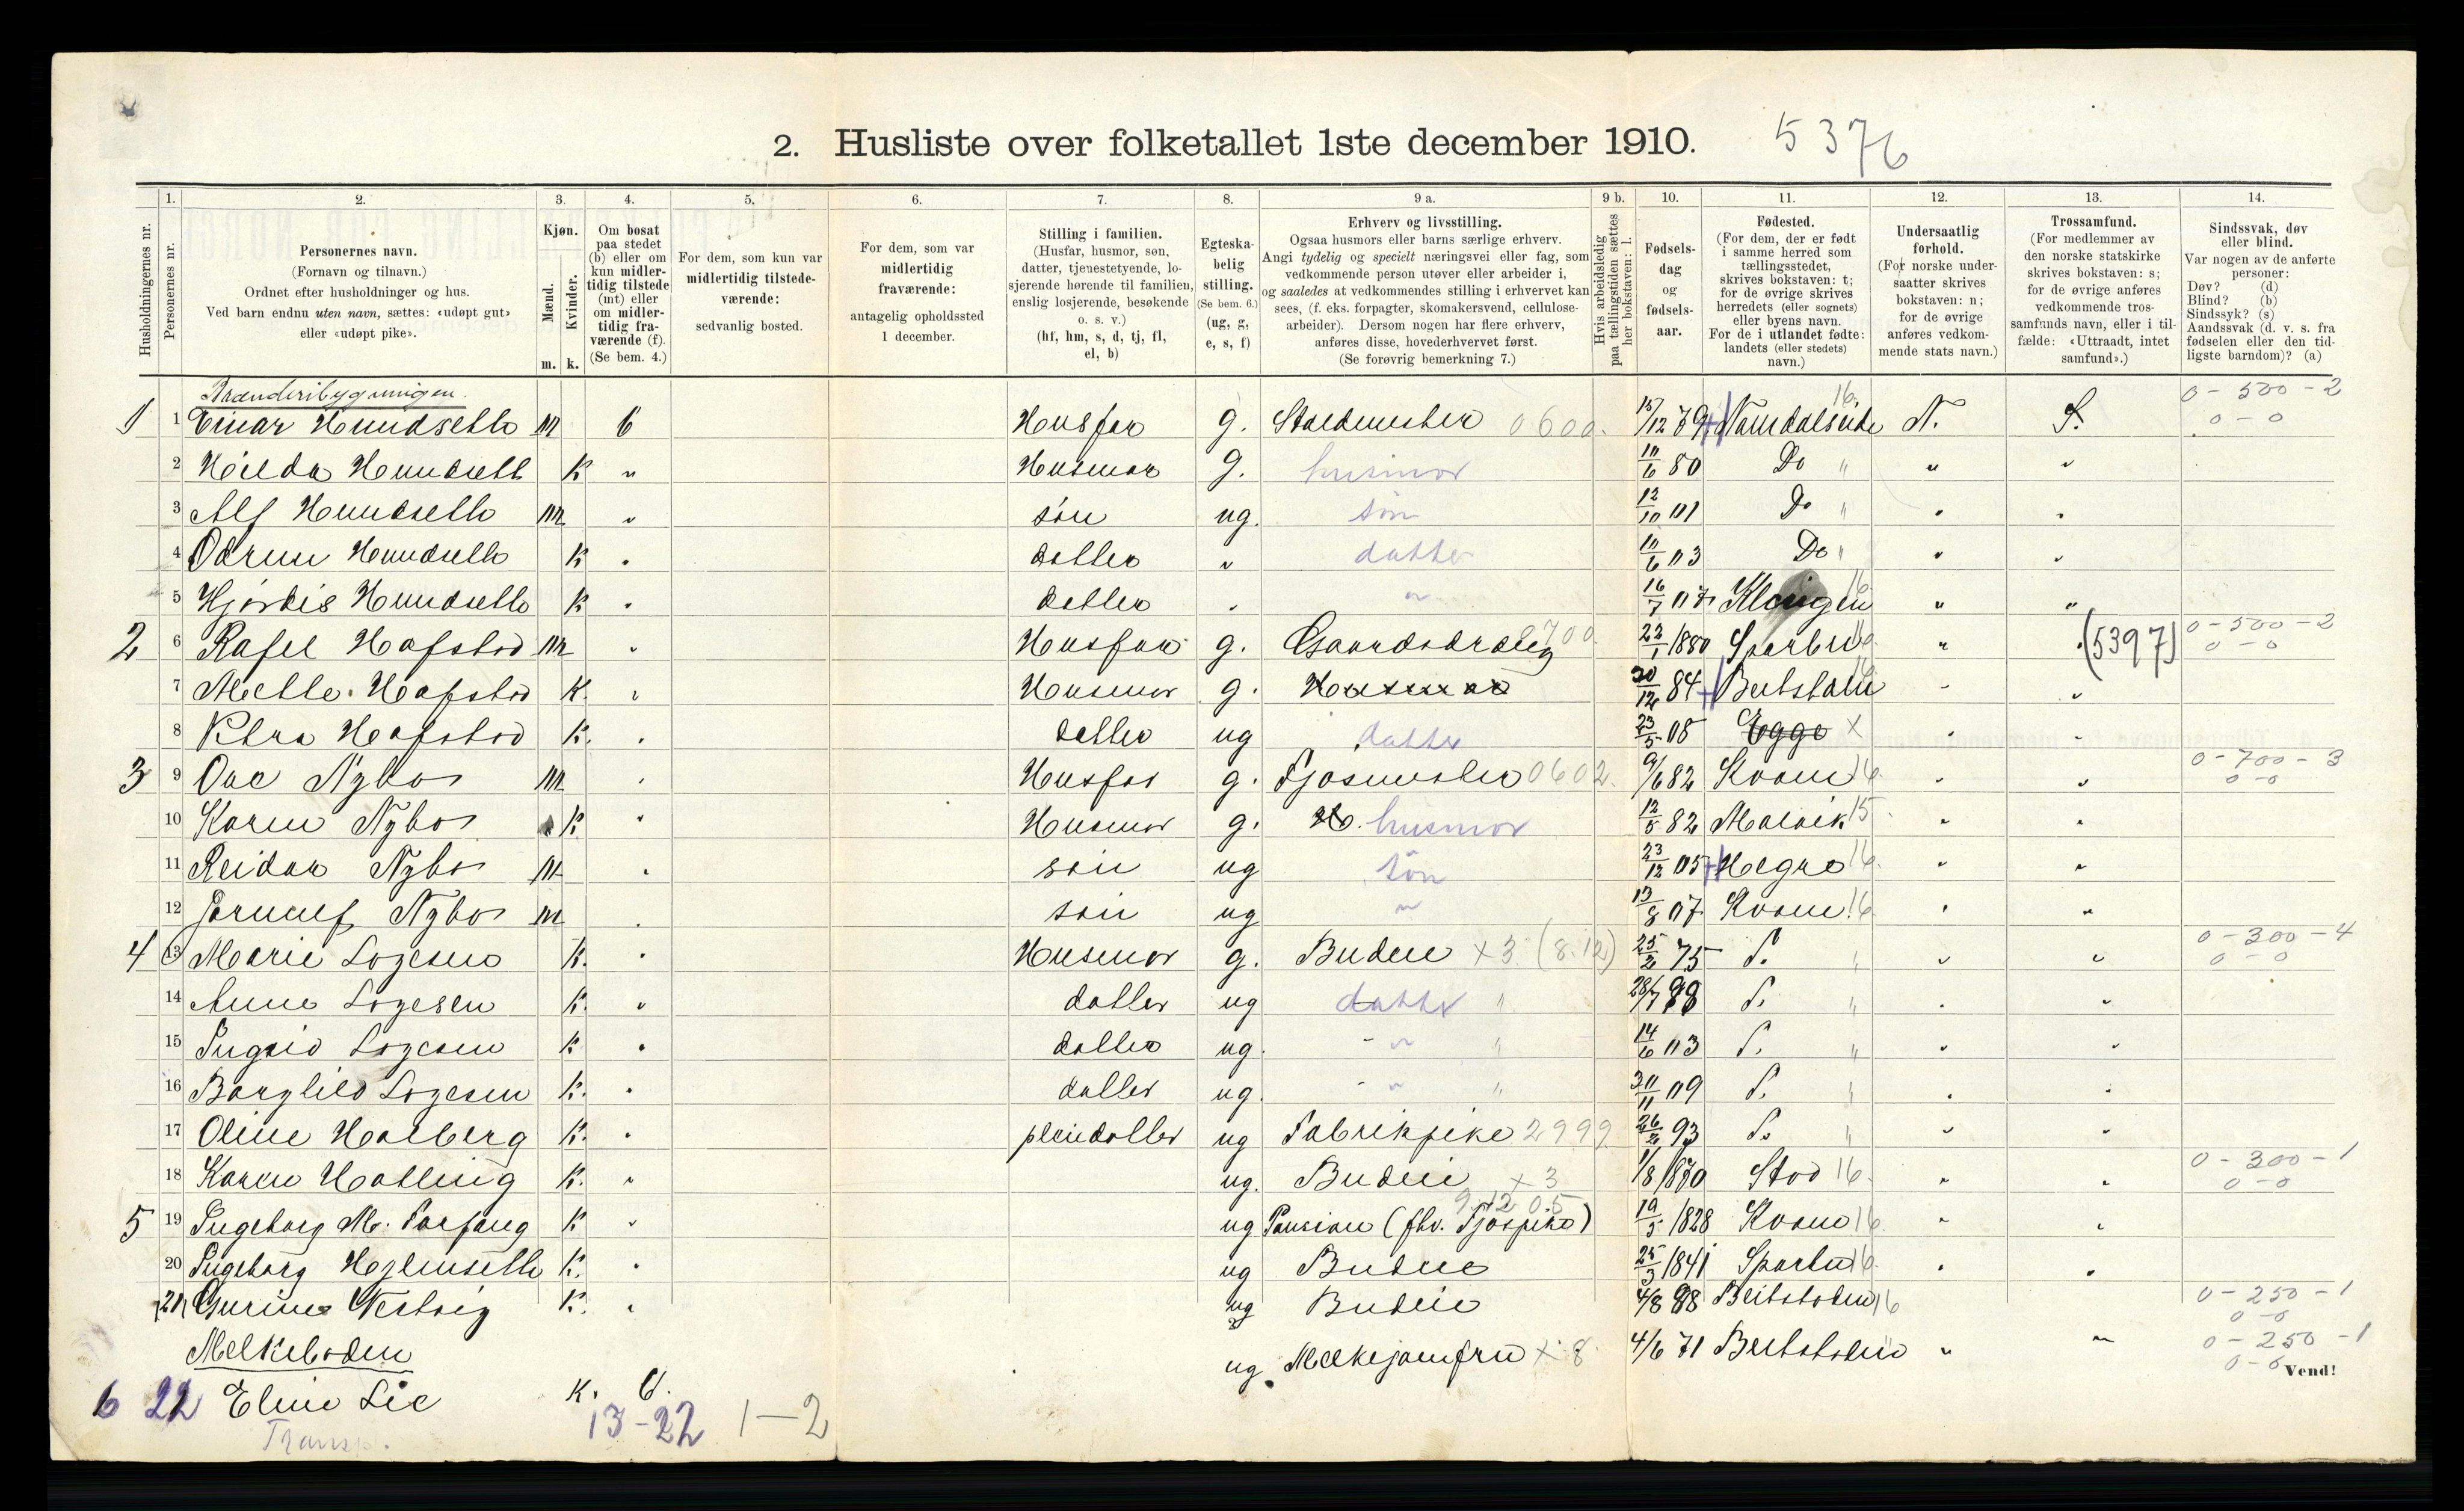 2. Husliste over folketallet 1ste december 1910. 5376
Husholdningernes nr.
1. Personernes nr.
2. Personernes navn. (Fornavn og tilnavn.) Ordnet efter husholdninger og hus. Ved barn endnu uten navn, sættes: «udøpt gut» eller «udøpt pike».
3. Kjøn. Mænd. m. Kvinder. k.
4. Om bosat paa stedet (b) eller om kun midlertidig tilstede (mt) eller om midlertidig fraværende (f). (Se bem. 4.)
5. For dem, som kun var midlertidig tilstedeværende: sedvanlig bosted.
6. For dem, som var midlertidig fraværende: antagelig opholdssted 1 december.
7. Stilling i familien. (Husfar, husmor, søn, datter, tjenestetyende, losjerende hørende til familien, enslig losjerende, besøkende o. s. v.) (hf, hm, s, d, tj, fl, el, b)
8. Egteskabelig stilling. (Se bem. 6.) (ug, g, e, s, f)
9 a. Erhverv og livsstilling. Ogsaa husmors eller barns særlige erhverv. Angi tydelig og specielt næringsvei eller fag, som vedkommende person utøver eller arbeider i, og saaledes at vedkommendes stilling i erhvervet kan sees, (f. eks. forpagter, skomakersvend, cellulosearbeider). Dersom nogen har flere erhverv, anføres disse, hovederhvervet først. (Se forøvrig bemerkning 7.)
9 b. Hvis arbeidsledig paa tællingstiden sættes her bokstaven: l.
10. Fødselsdag og fødselsaar.
11. Fødested. (For dem, der er født i samme herred som tællingsstedet, skrives bokstaven: t; for de øvrige skrives herredets (eller sognets) eller byens navn. For de i utlandet fødte: landets (eller stedets) navn.)
12. Undersaatlig forhold. (For norske undersaatter skrives bokstaven: n; for de øvrige anføres vedkommende stats navn.)
13. Trossamfund. (For medlemmer av den norske statskirke skrives bokstaven: s; for de øvrige anføres vedkommende trossamfunds navn, eller i tilfælde: «Uttraadt, intet samfund».)
14. Sindssvak, døv eller blind. Var nogen av de anførte personer: Døv? (d) Blind? (b) Sindssyk? (s) Aandssvak (d. v. s. fra fødselen eller den tidligste barndom)? (a)
0-500-2
1 1 m b Husfar g. Staldmester 0600. 15/12 79 Namdalseide 16. N. S. 0-0
2 Hilda K " Husmor g. husmor 10/6 80 Do " " "
3 Alf m " søn ug. søn 12/10 01 Do "
4 K " datter " datter 10/6 03 Do "
5 Hjørdis K " datter " " 16/7 07 Klingen 16 " "
2 6 Rafel Hafstad m " Husfar g. 0700. 22/1 1880 Sparbu 16. " (5397) 0-500-2 0-0
7 Mette Hafstad K. " Husmor g. Husmor 30/12 84 Beitstaden 16 "
8 Petra Hafstad K. " datter ug datter 23/5 08 Egge X
3 9 Ove Nybo m " Husfar g. Fjøsmester 0602. 9/6 82 Kvam 16. " " 0-700-3 0-0
10 Karen Nybo K " Husmor g. husmor 12/5 82 Malvik 15 " "
11 Reidar Nybo m " søn ug søn 23/12 05 Hegra 16. " "
12 Nybo m søn ug " 13/8 07 Kvam 16. " "
4 13 Marie K. " Husmor g. Budeie X3 (8.12) 25/2 75 " " 0-300-4 0-0
14 Anna K. " datter ug datter "
15 Ingrid K " datter ug. " 14/6 03 " "
16 Borghild K. " datter ug. " 30/11 09
17 Oline Halberg K. " pleiedatter ug Fabrikpike 2999 26/2 93 " "
18 Karen Halling K. " ug. Budeie X3 1/8 1870 Stod 16. " " 0-300-1 0-0
5 19 Ingeborg M. K " ug Pension (fhv. Fjøspike) 9.12 05 19/5 1828 Kvam 16. " "
20 Ingeborg K. " ug Budeie 25/3 1841 Sparbu 16.
21 K. " ug Budeie 4/8 88 Beitstaden 16 0-250-1 0-0
Melkeboden
6 22 Eline Lie K. b. ug. Melkejomfru X 8. 4/6 71 Beitstaden " " 0-250-1 0-0
Vend!
13-22 1-2
Transp.